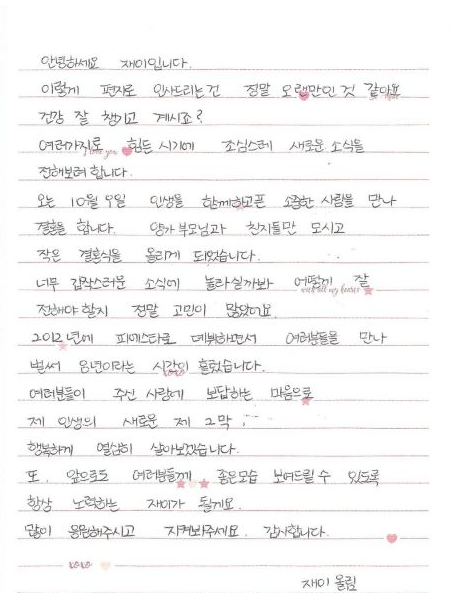 안녕하세요 재이입니다.
이렇게 편지로 인사드리는건 정말 오랜만인 것 같아요
건강 잘 챙기고 계시죠?
여러가지로 힘든 시기에 조심스레 새로운 소식을
love you
전해보려 합니다.
오는 10월 9일 인생을 함께하고픈 소중한 사람을 만나
결혼을 합니다. 양가 부모님과 친지들만 모시고
작은 결혼식을 올리게 되었습니다.
너무 갑작스러운 소식에 놀라실까봐 어떻게 잘
with all my hearts
전해야 할지 정말 고민이 많았어요.
2012년에 피에스타로 데뷔하면서 여러분들을 만나
벌써 8년이라는 시간이 흘렀습니다.
xoxo
여러분들이 주신 사랑에 보답하는 마음으로
제 인생의 새로운 제 2막,
행복하게 열심히 살아보겠습니다.
또, 앞으로도 여러분들께 좋은모습 보여드릴 수 있도록
항상 노력하는 재이가 될게요.
많이 응원해주시고 지켜봐주세요. 감사합니다.
xoxo
재이 올림